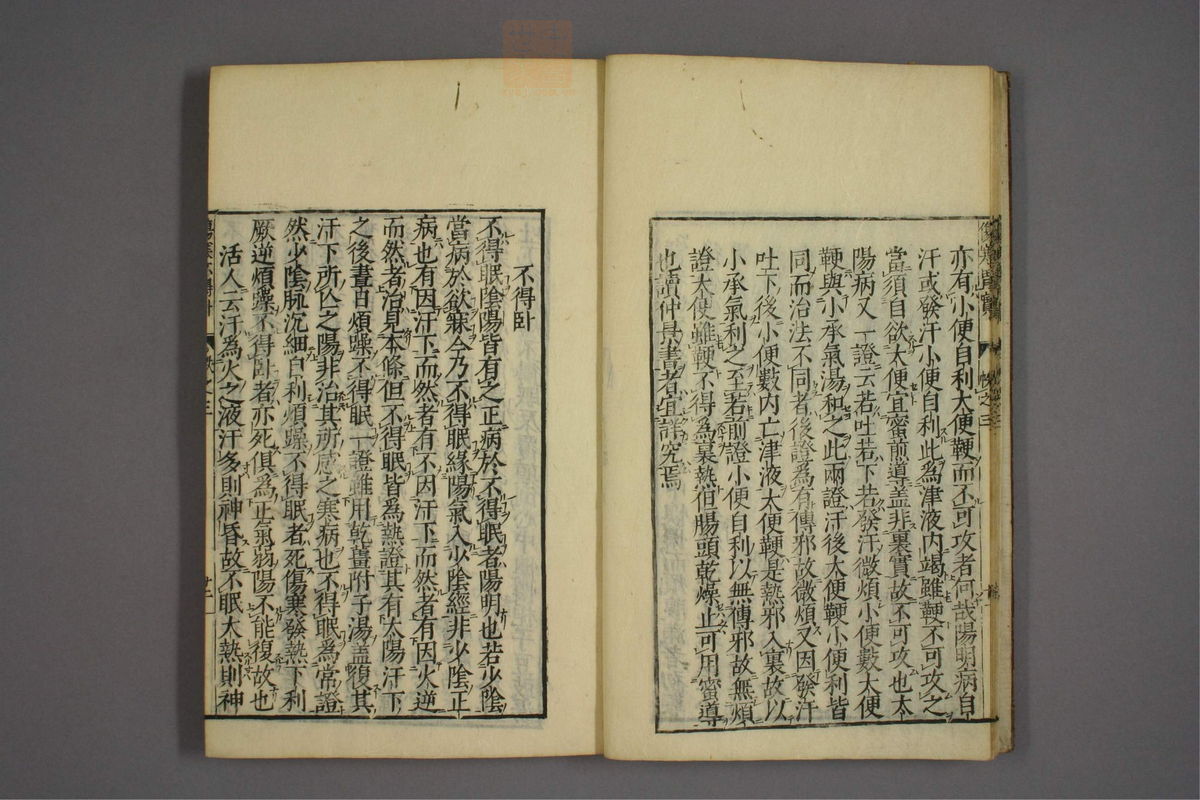 亦有小便自利大便鞕而不可攻者何哉陽明病自
汗或發汗小便自利此為津液內竭雖鞕不可攻之
當須自欲大便宜蜜煎導蓋非裏實故不可攻也太
陽病又一證云若吐若下若發汗微煩小便數大便
鞕與小承氣湯和之此兩證汗後大便鞕小便利皆
同而治法不同者後證為有傳邪故微煩又因發汗
吐下後小便數內亡津液大便鞕是熱邪入裏故以
小承氣利之至若前證小便自利以無傳邪故無煩
證大便雖鞕不得為裏熱但腸頭乾燥止可用蜜導
也讀仲景書者宜詳究焉
不得卧
不得眠陰陽皆有之正病於不得眠者陽明也若少陰
當病於欲寐今乃不得眠緣陽氣入少陰經非少陰正
病也有因汗下而然者有不因汗下而然者有因火逆
而然者治見本條但不得眠皆為熱證其有太陽汗下
之後晝日煩躁不得眠一證雖用乾薑附子湯蓋復其
汗下所亡之陽非治其所感之寒病也不得眠為常證
然少陰脉沉細自利煩躁不得眠者死傷寒發熱下利
厥逆煩躁不得卧者亦死俱為正氣弱陽不能復故也
活人云汗為火之液汗多則神昏故不眠大熱則神